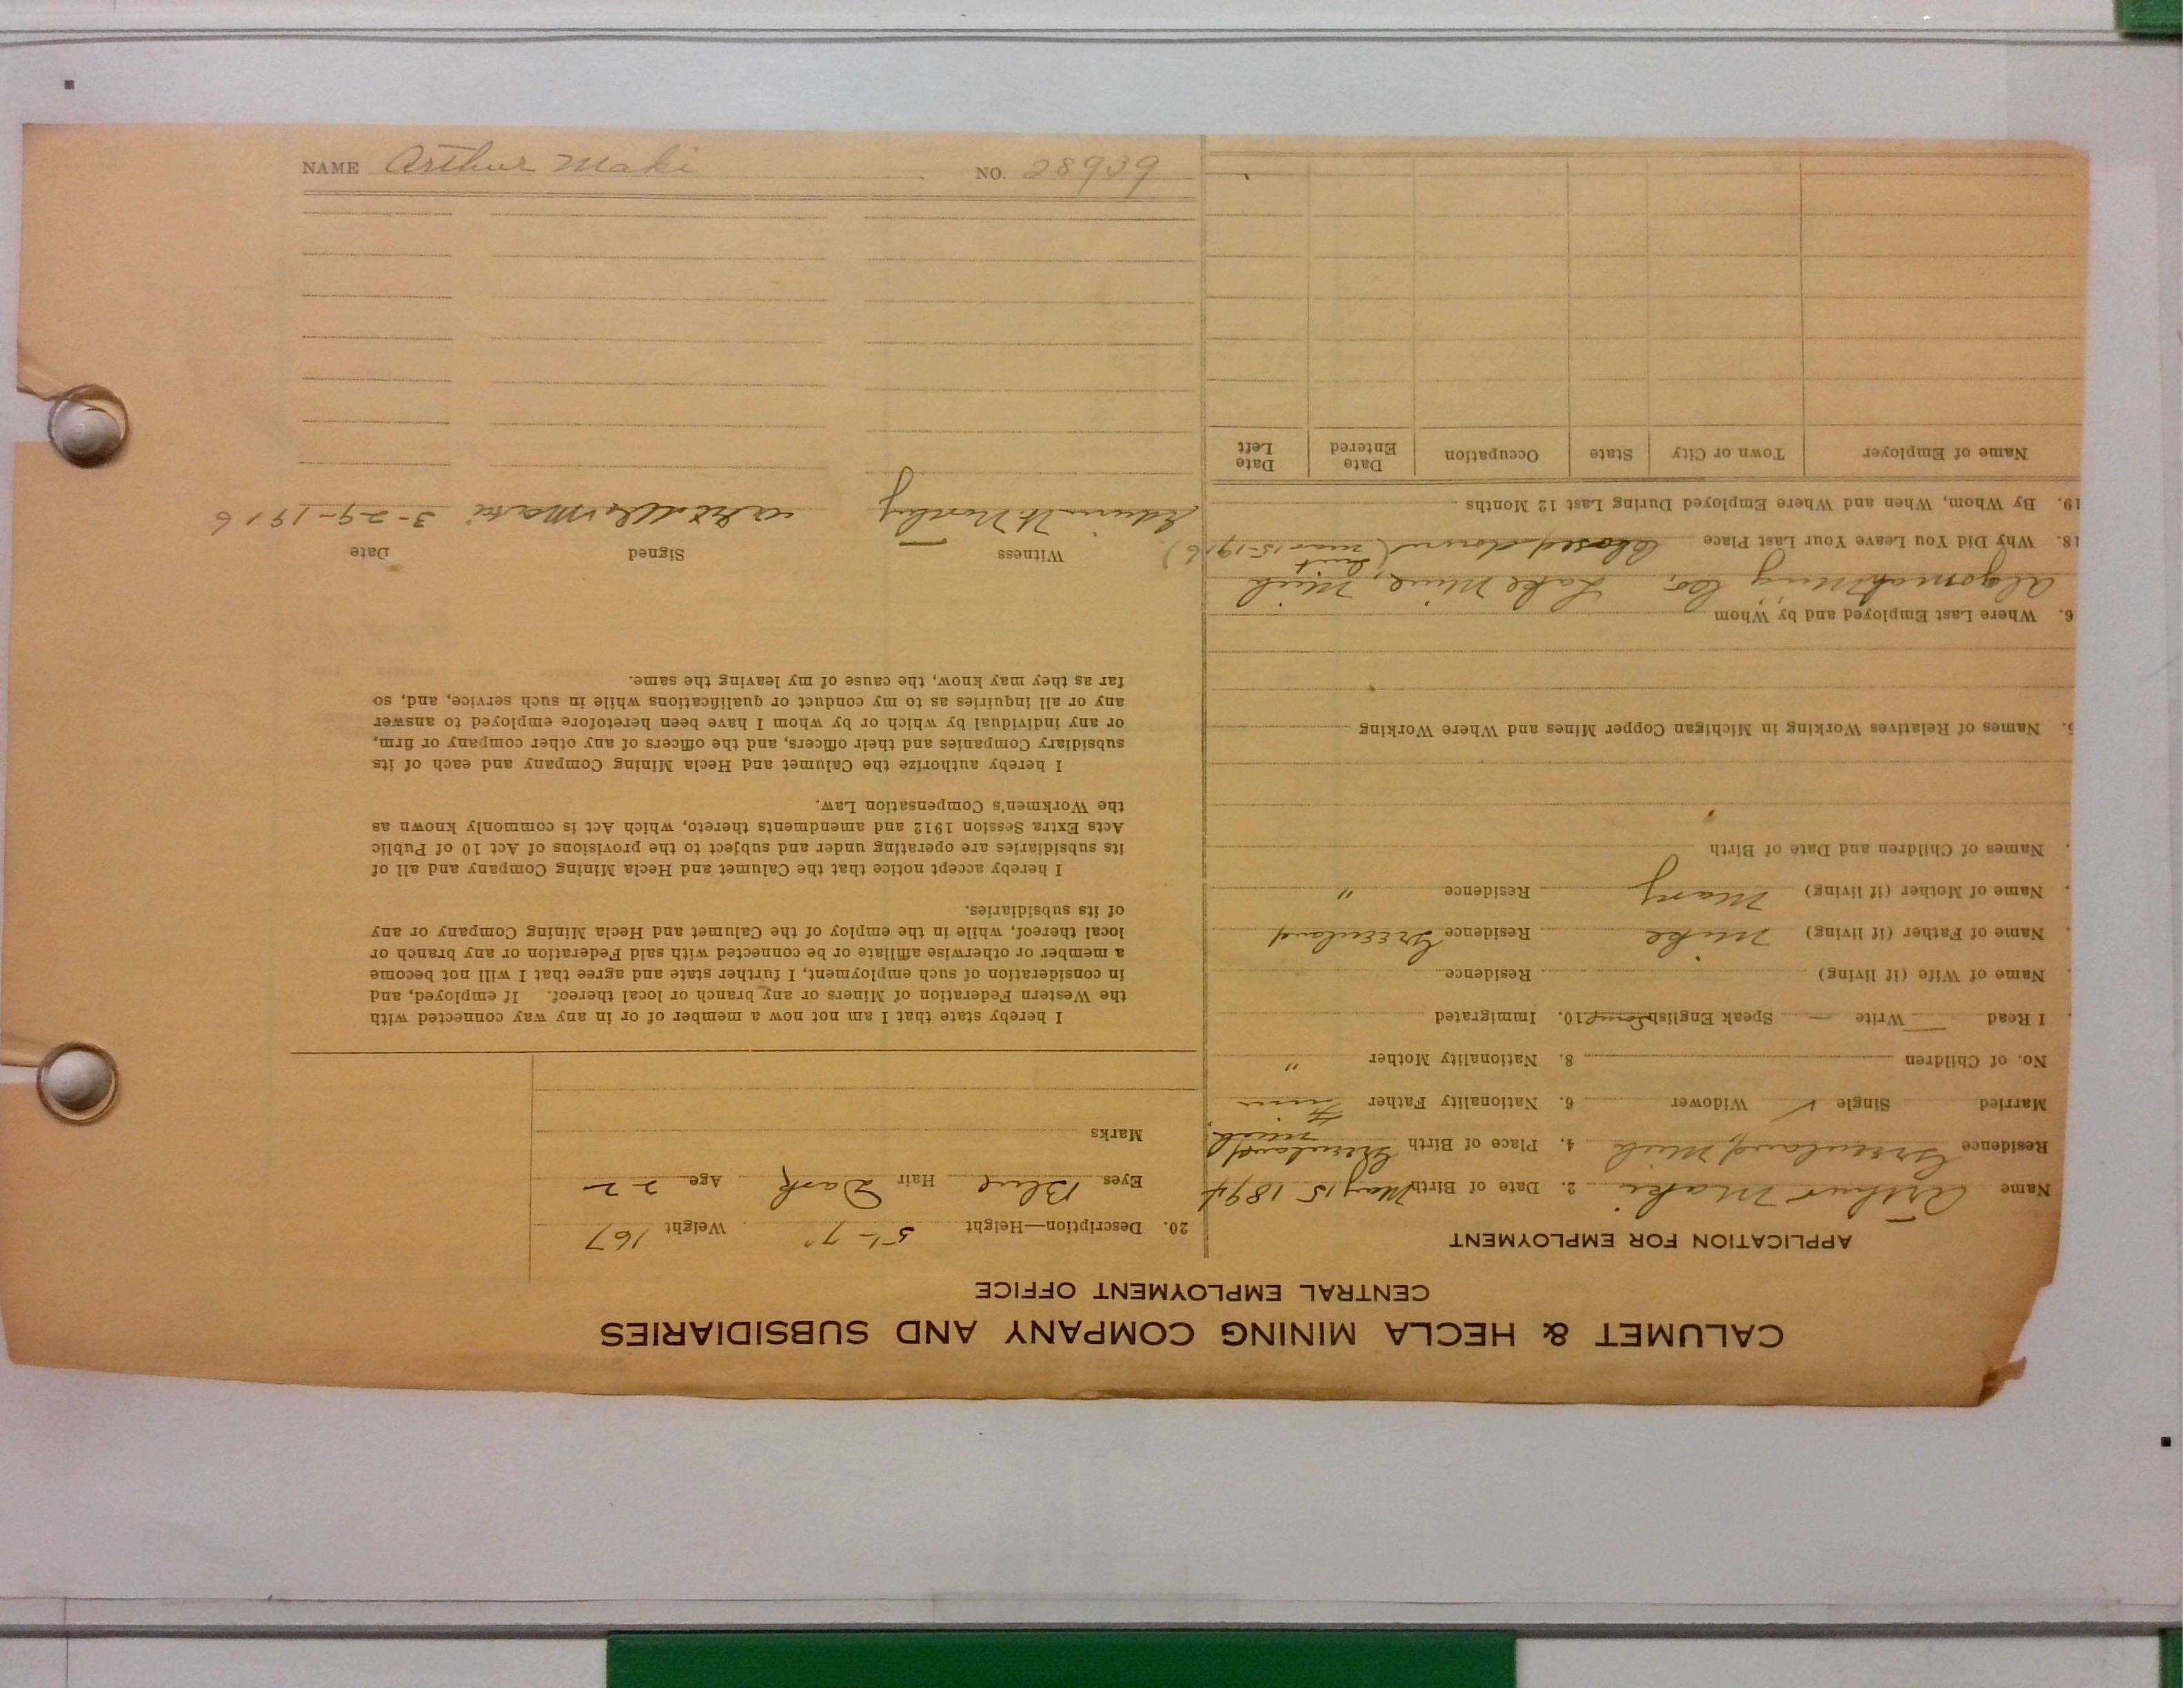 CALUMET & HECLA MINING COMPANY AND SUBSIDIARIES
CENTRAL EMPLOYMENT OFFICE
APPLICATION FOR EMPLOYMENT
Name Arthur Maki 2. Date of Birth May 15 1894
Residence Greenland, Mich 4. Place of Birth Greenland Mich.
Married Single ✓ Widower 6. Nationality Father Finn
No. of Children 8. Nationality Mother "
I Read — Write — Speak English 10. Immigrated
Name of Wife (if living) Residence
Name of Father (if living) Mike Residence Greenland
Name of Mother (if living) Mary Residence "
Names of Children and Date of Birth
5. Names of Relatives Working in Michigan Copper Mines and Where Working
6. Where Last Employed and by Whom
Algomah Mng Co. Lake Mine, Mich
18. Why Did You Leave Your Last Place Closed down (Mar 15-1916)
19. By Whom, When and Where Employed During Last 12 Months
Name of Employer Town or City State Occupation Date Entered Date Left
20. Description—Height 5'-7" Weight 167
Eyes Blue Hair Dark Age 22
Marks
I hereby state that I am not now a member of or in any way connected with
the Western Federation of Miners or any branch or local thereof. If employed, and
in consideration of such employment, I further state and agree that I will not become
a member or otherwise affiliate or be connected with said Federation or any branch or
local thereof, while in the employ of the Calumet and Hecla Mining Company or any
of its subsidiaries.
I hereby accept notice that the Calumet and Hecla Mining Company and all of
its subsidiaries are operating under and subject to the provisions of Act 10 of Public
Acts Extra Session 1912 and amendments thereto, which Act is commonly known as
the Workmen's Compensation Law.
I hereby authorize the Calumet and Hecla Mining Company and each of its
subsidiary Companies and their officers, and the officers of any other company or firm,
or any individual by which or by whom I have been heretofore employed to answer
any or all inquiries as to my conduct or qualifications while in such service, and, so
far as they may know, the cause of my leaving the same.
Witness Signed Date
Edwin H Maki 3-29-1916
NAME Arthur Maki NO. 28939